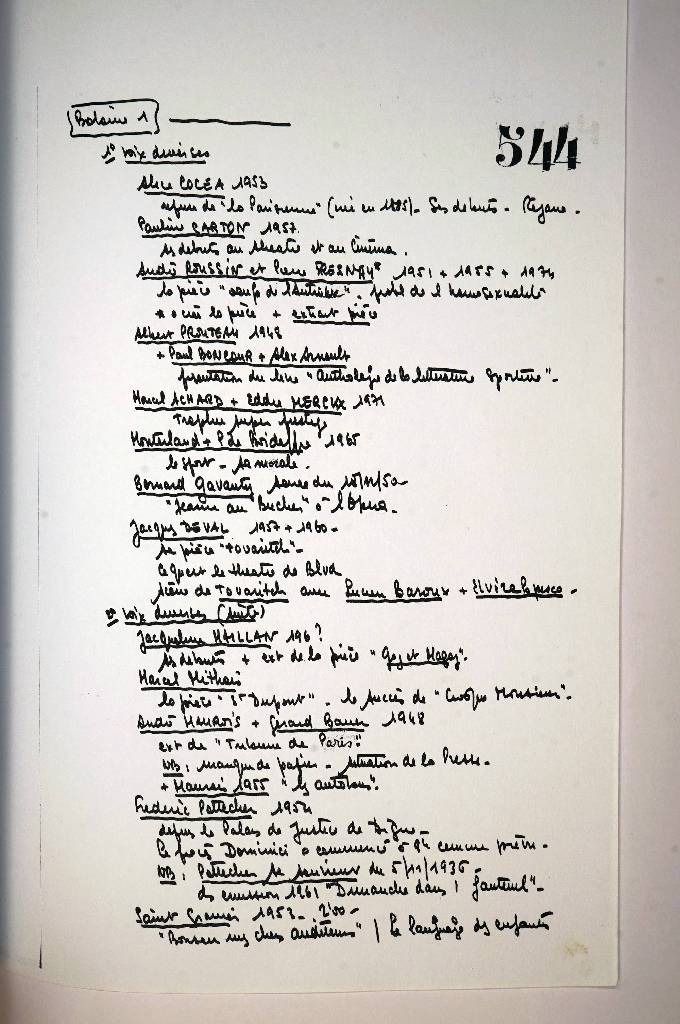 Bobine 1
544
1° voix diverses
Alice COCEA 1953
reprise de "la Parisienne" (créé en 1885) - Ses débuts - Réjane.
Pauline CARTON 1957.
ses débuts au théâtre et au Cinéma.
André ROUSSIN et Pierre FRESNAY 1951 + 1955 + 1974
la pièce "oeufs de l'Autruche". probl de l'homosexualité
la pièce + extrait pièce
Albert PROUTEAU 1948
+ Paul BONCOUR + Alex Arnoult
présentation du livre "Anthologie de la littérature Sportive".
Marcel ACHARD + Eddie MERCKX 1971
Trophée super prestige
Monterland + P de Boisdeffre 1965
le sport - sa morale.
Bernard Gavoty soirée du 18/12/50
"Jeanne au Bucher" à l'Opéra.
Jacques DEVAL 1957 + 1960 -
sa pièce "Tovaritch" -
ce qu'est le théatre de Blvd
scène de Tovaritch avec Lucien Baroux + Elvire Popesco -
2° voix diverses (suite)
Jacqueline MAILLAN 196?
ses débuts + ext de la pièce "Gog et Magog".
Marcel Mithois
la pièce " Dupont" - le succès de "Croque Monsieur".
André MAUROIS + Gérard Bauer 1948
ext de "Tribune de Paris".
NB: manque de papier - situation de la Presse -
+ Maurois 1955 "les autobus".
Frédéric Pottecher 1954
depuis le Palais de Justice de Digne -
Le procès Dominici a commencé à 9h comme prévu -
NB: Pottecher se souvient du 5/11/1936 -
ds emission 1961 "Dimanche dans 1 fauteuil" -
Saint Granier 1953 - 2'00 -
"Bonsoir mes chers auditeurs" / Le language des enfants